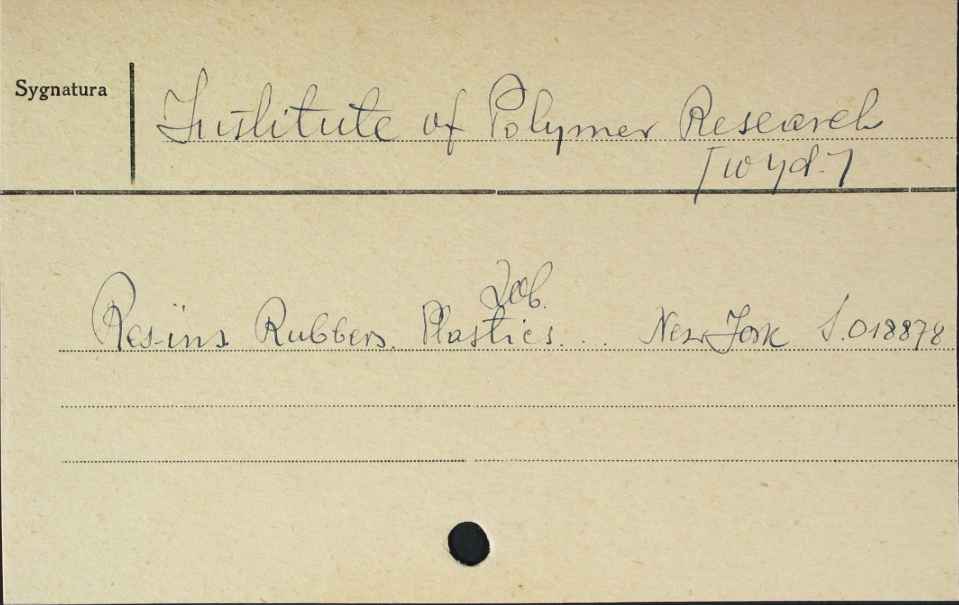 Sygnatura
Institute of Polymer Research
[wyd.]
Zob.
Resins Rubbers Plastics... New York S.018878